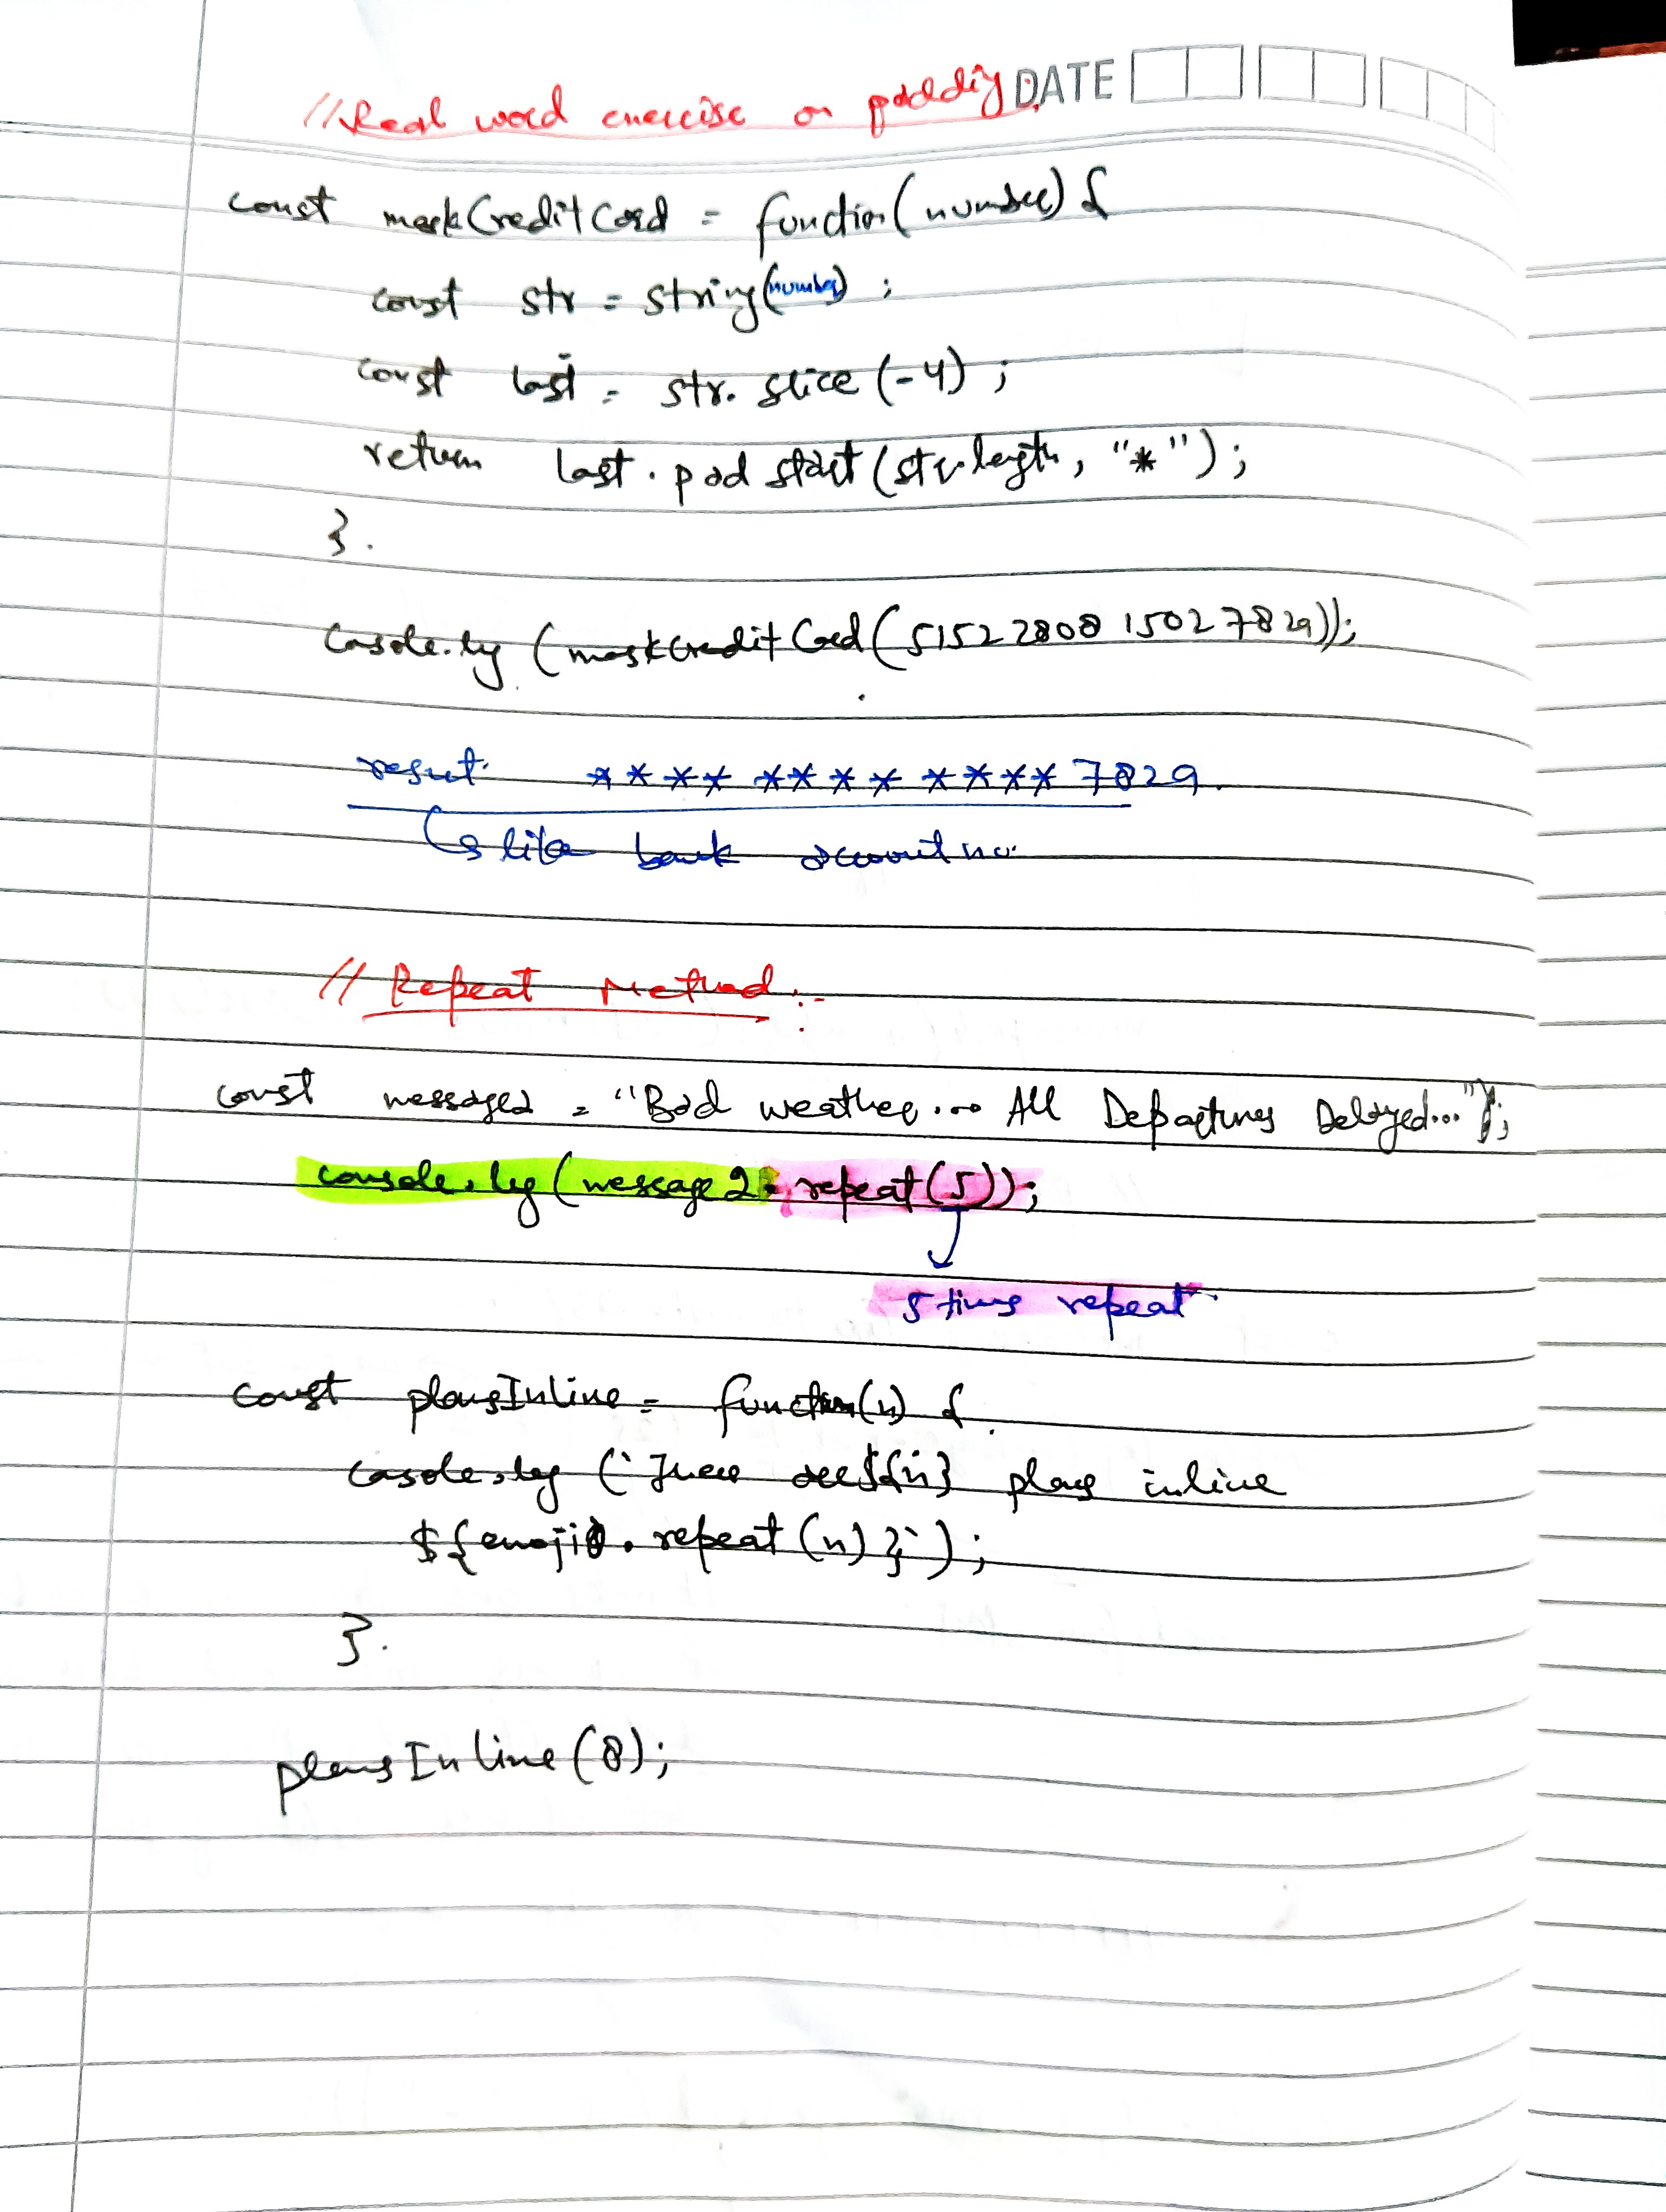 //Real word exercise on padding DATE
const maskCreditCard = function(number) {
const str = string(number) ;
const last = str. slice (-4) ;
return last . pad start (str.length, "*") ;
} .
Casole.log (maskCredit Card (5152 2808 1502 7829));
result. **** **** **** 7829.
↳ like bank account no.
// Repeat Method :-
const message2 = "Bad weather... All Departures Delayed...");
console.log (message 2. repeat (5));
5 times repeat.
const planesInline = function(n) {
Casole.log (`There are ${n} planes inline
${emoji. repeat (n) }`) ;
} .
planesInline (8);